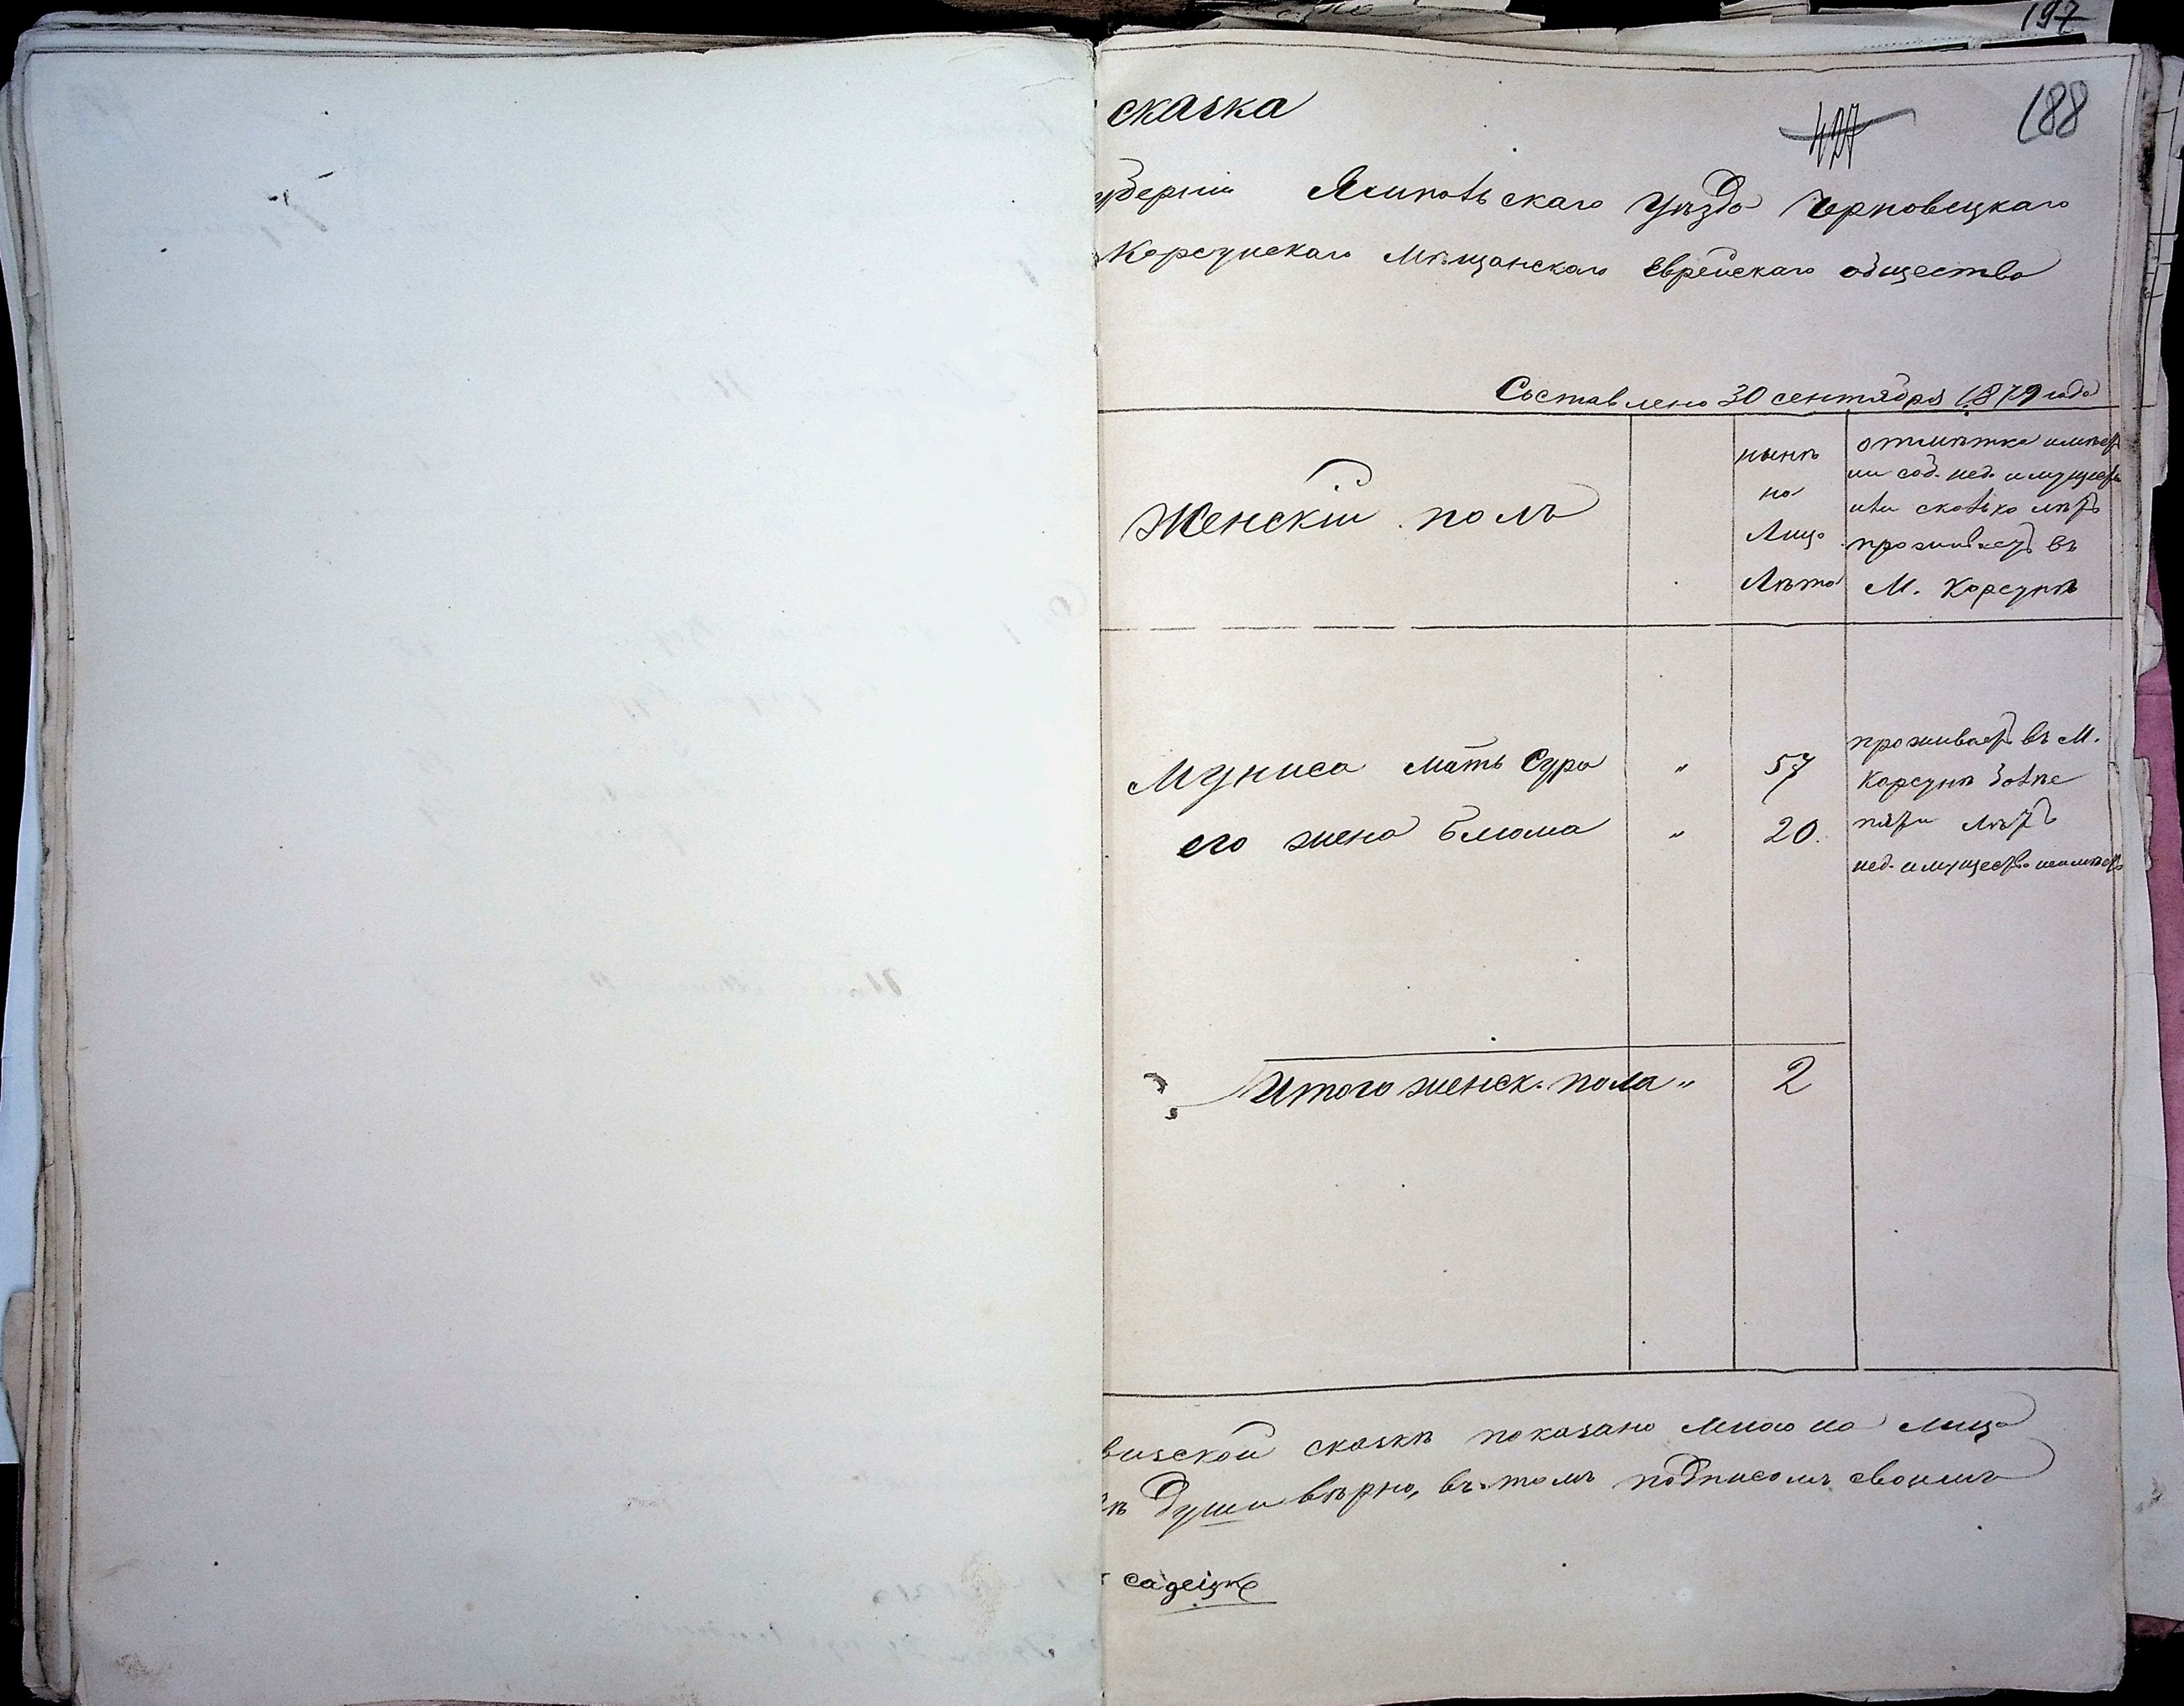 197
188
427
сказка
уберніи Ямпольскаго Уѣзда Черновецкаго
Корсунскаго Мѣщанскаго Еврейскаго общества
Составлено 30 сентября 1879 года
Женскій полъ
нынѣ
на
Лицо
Лѣта
отмѣтка имѣет
ли соб. нед. имущест
или сколько лѣтъ
проживаетъ въ
М. Корсунѣ
Муниса мать Сура " 57
его жена Блюма " 20.
проживаетъ въ М.
Корсунѣ болѣе
пяти лѣтъ
нед. имущество неимѣетъ
Итого женск. пола " 2
визской сказкѣ показано мною на лицо
души вѣрно, въ томъ подписомъ своимъ